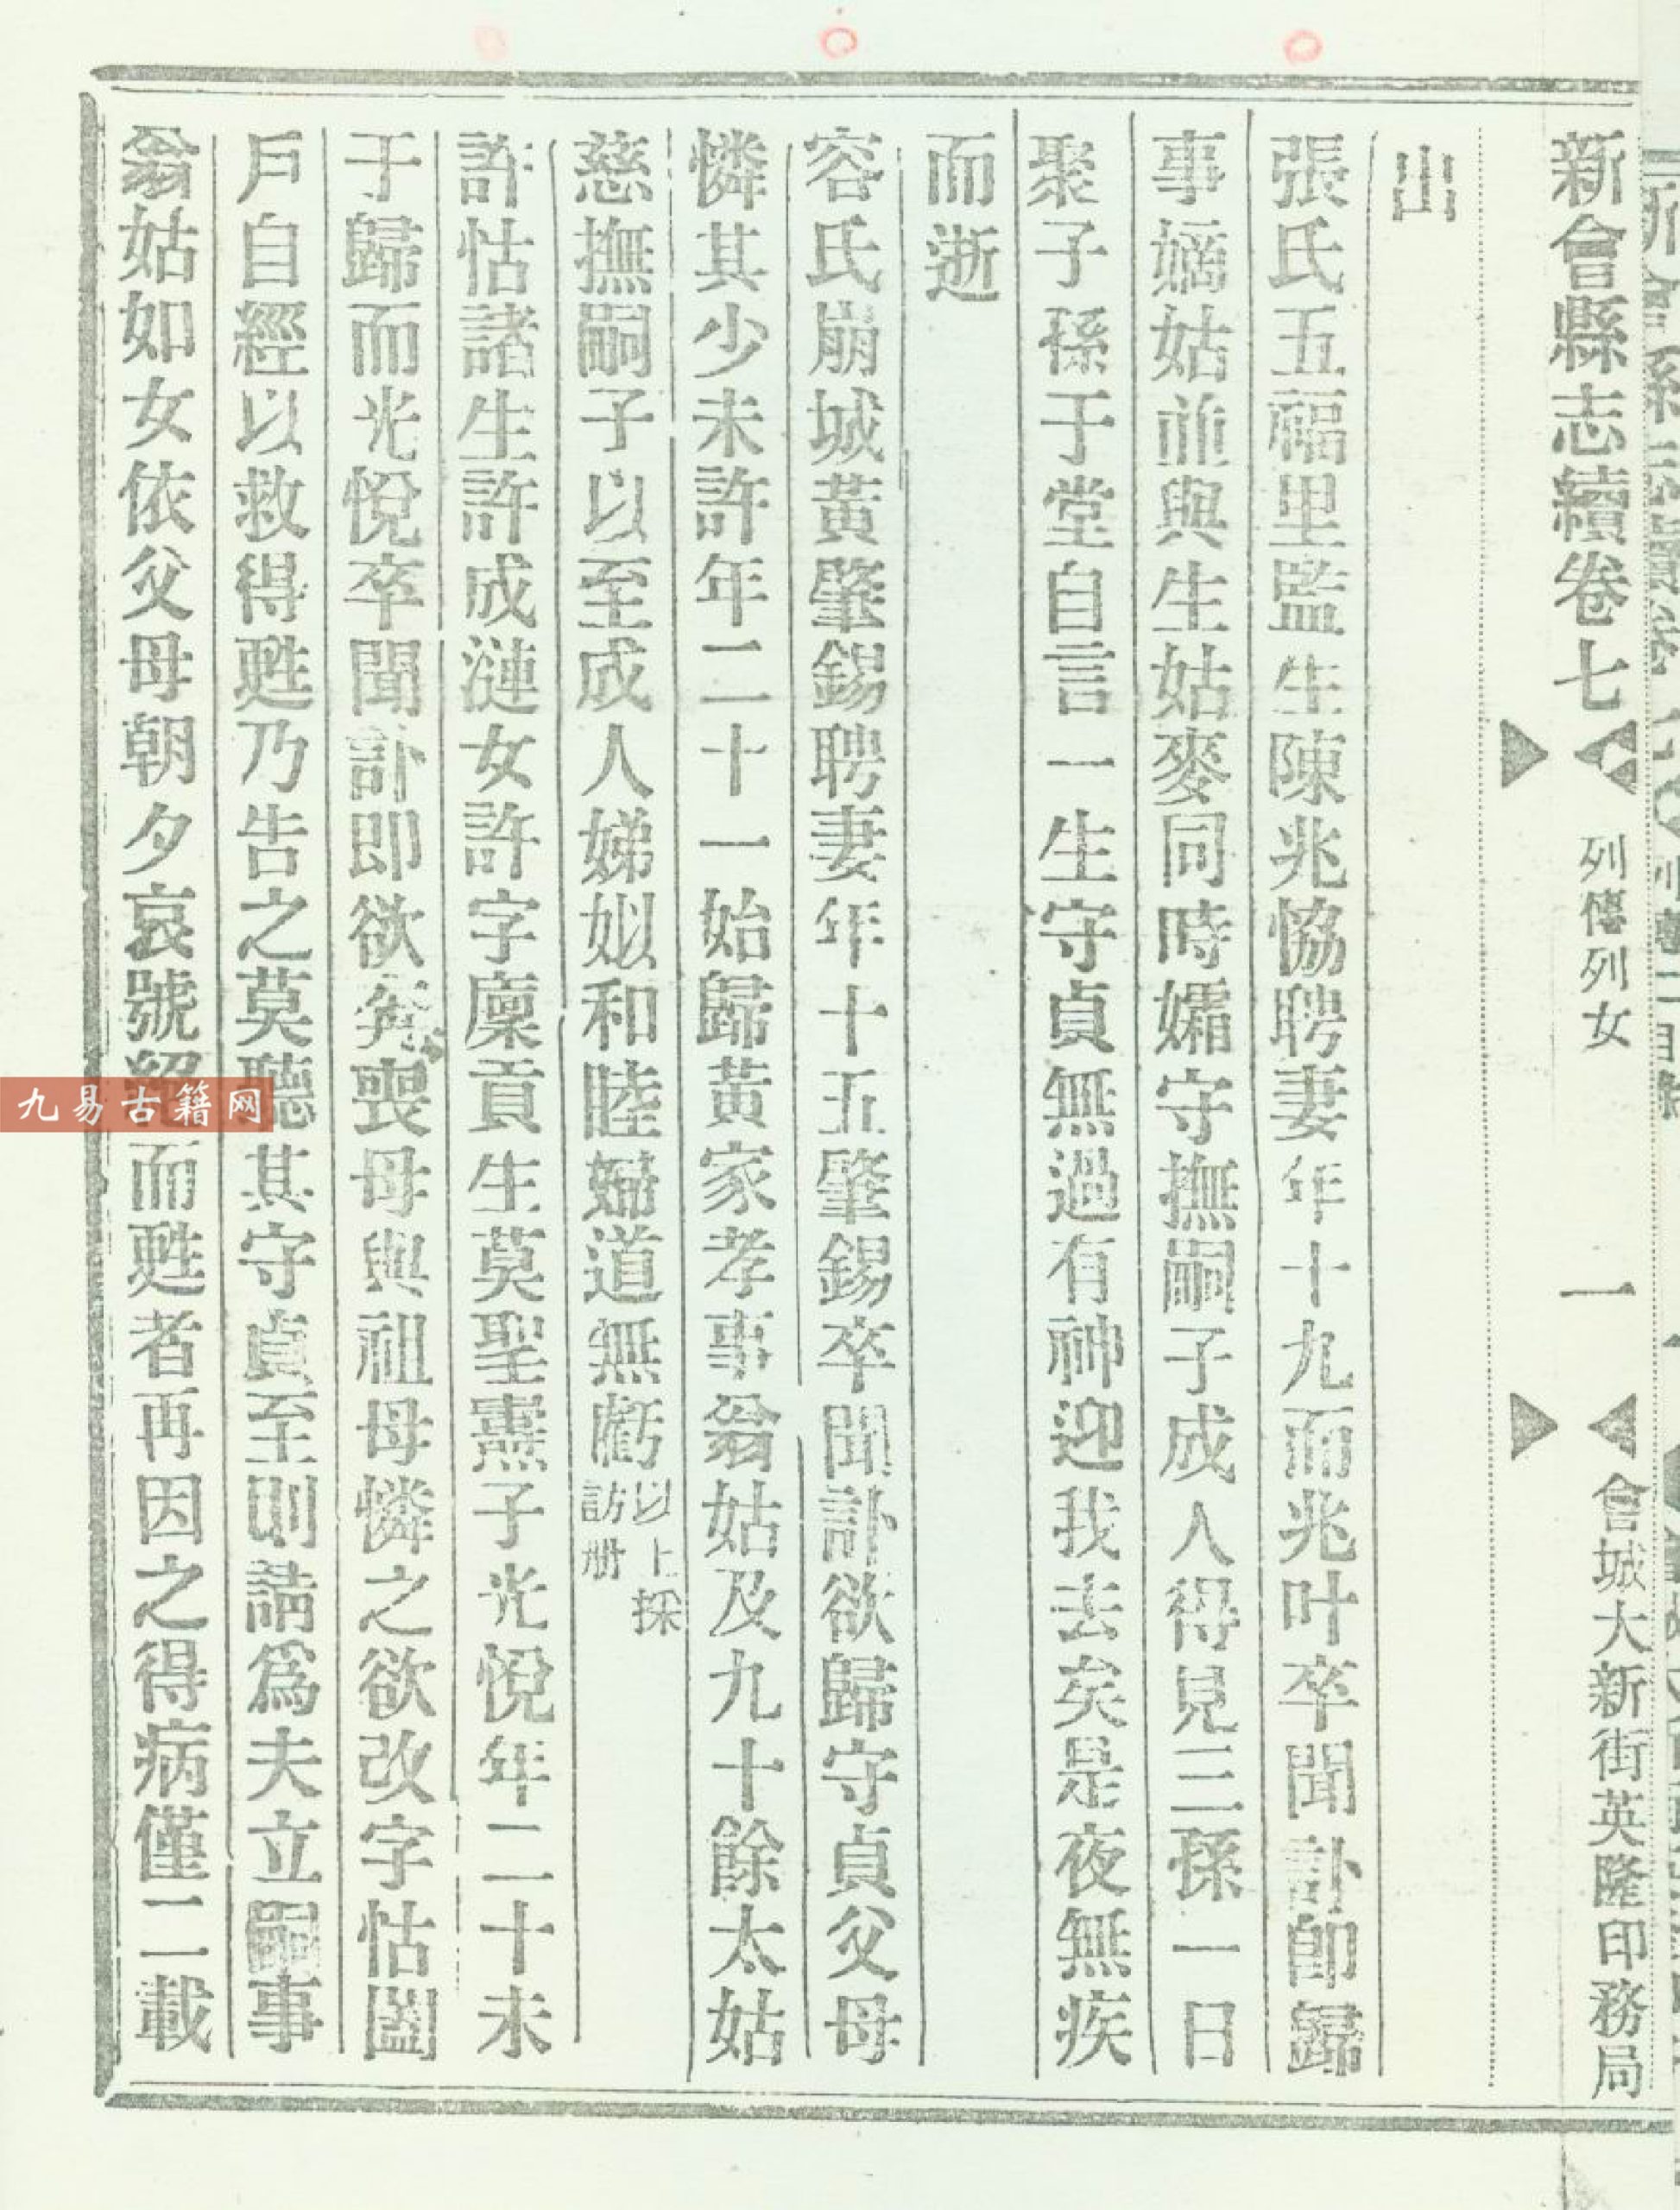 新會縣志續卷七 列傳列女 一 會城大新街英隆印務局
出
張氏五福里監生陳兆恊聘妻年十九而兆叶卒聞訃卽歸
事嫡姑並與生姑麥同時孀守撫嗣子成人得見三孫一日
聚子孫于堂自言一生守貞無過有神迎我去矣是夜無疾
而逝
容氏崩城黃肇錫聘妻年十五肇錫卒聞訃欲歸守貞父母
憐其少未許年二十一始歸黃家孝事翁姑及九十餘太姑
慈撫嗣子以至成人娣姒和睦婦道無虧以上採訪册
許怙諸生許成漣女許字廩貢生莫聖熹子光悅年二十未
于歸而光悅卒聞訃即欲奔喪母與祖母憐之欲改字怙闔
戶自經以救得甦乃告之莫聽其守貞至則請爲夫立嗣事
翁姑如女依父母朝夕哀號絕而甦者再因之得病僅二載
九易古籍网